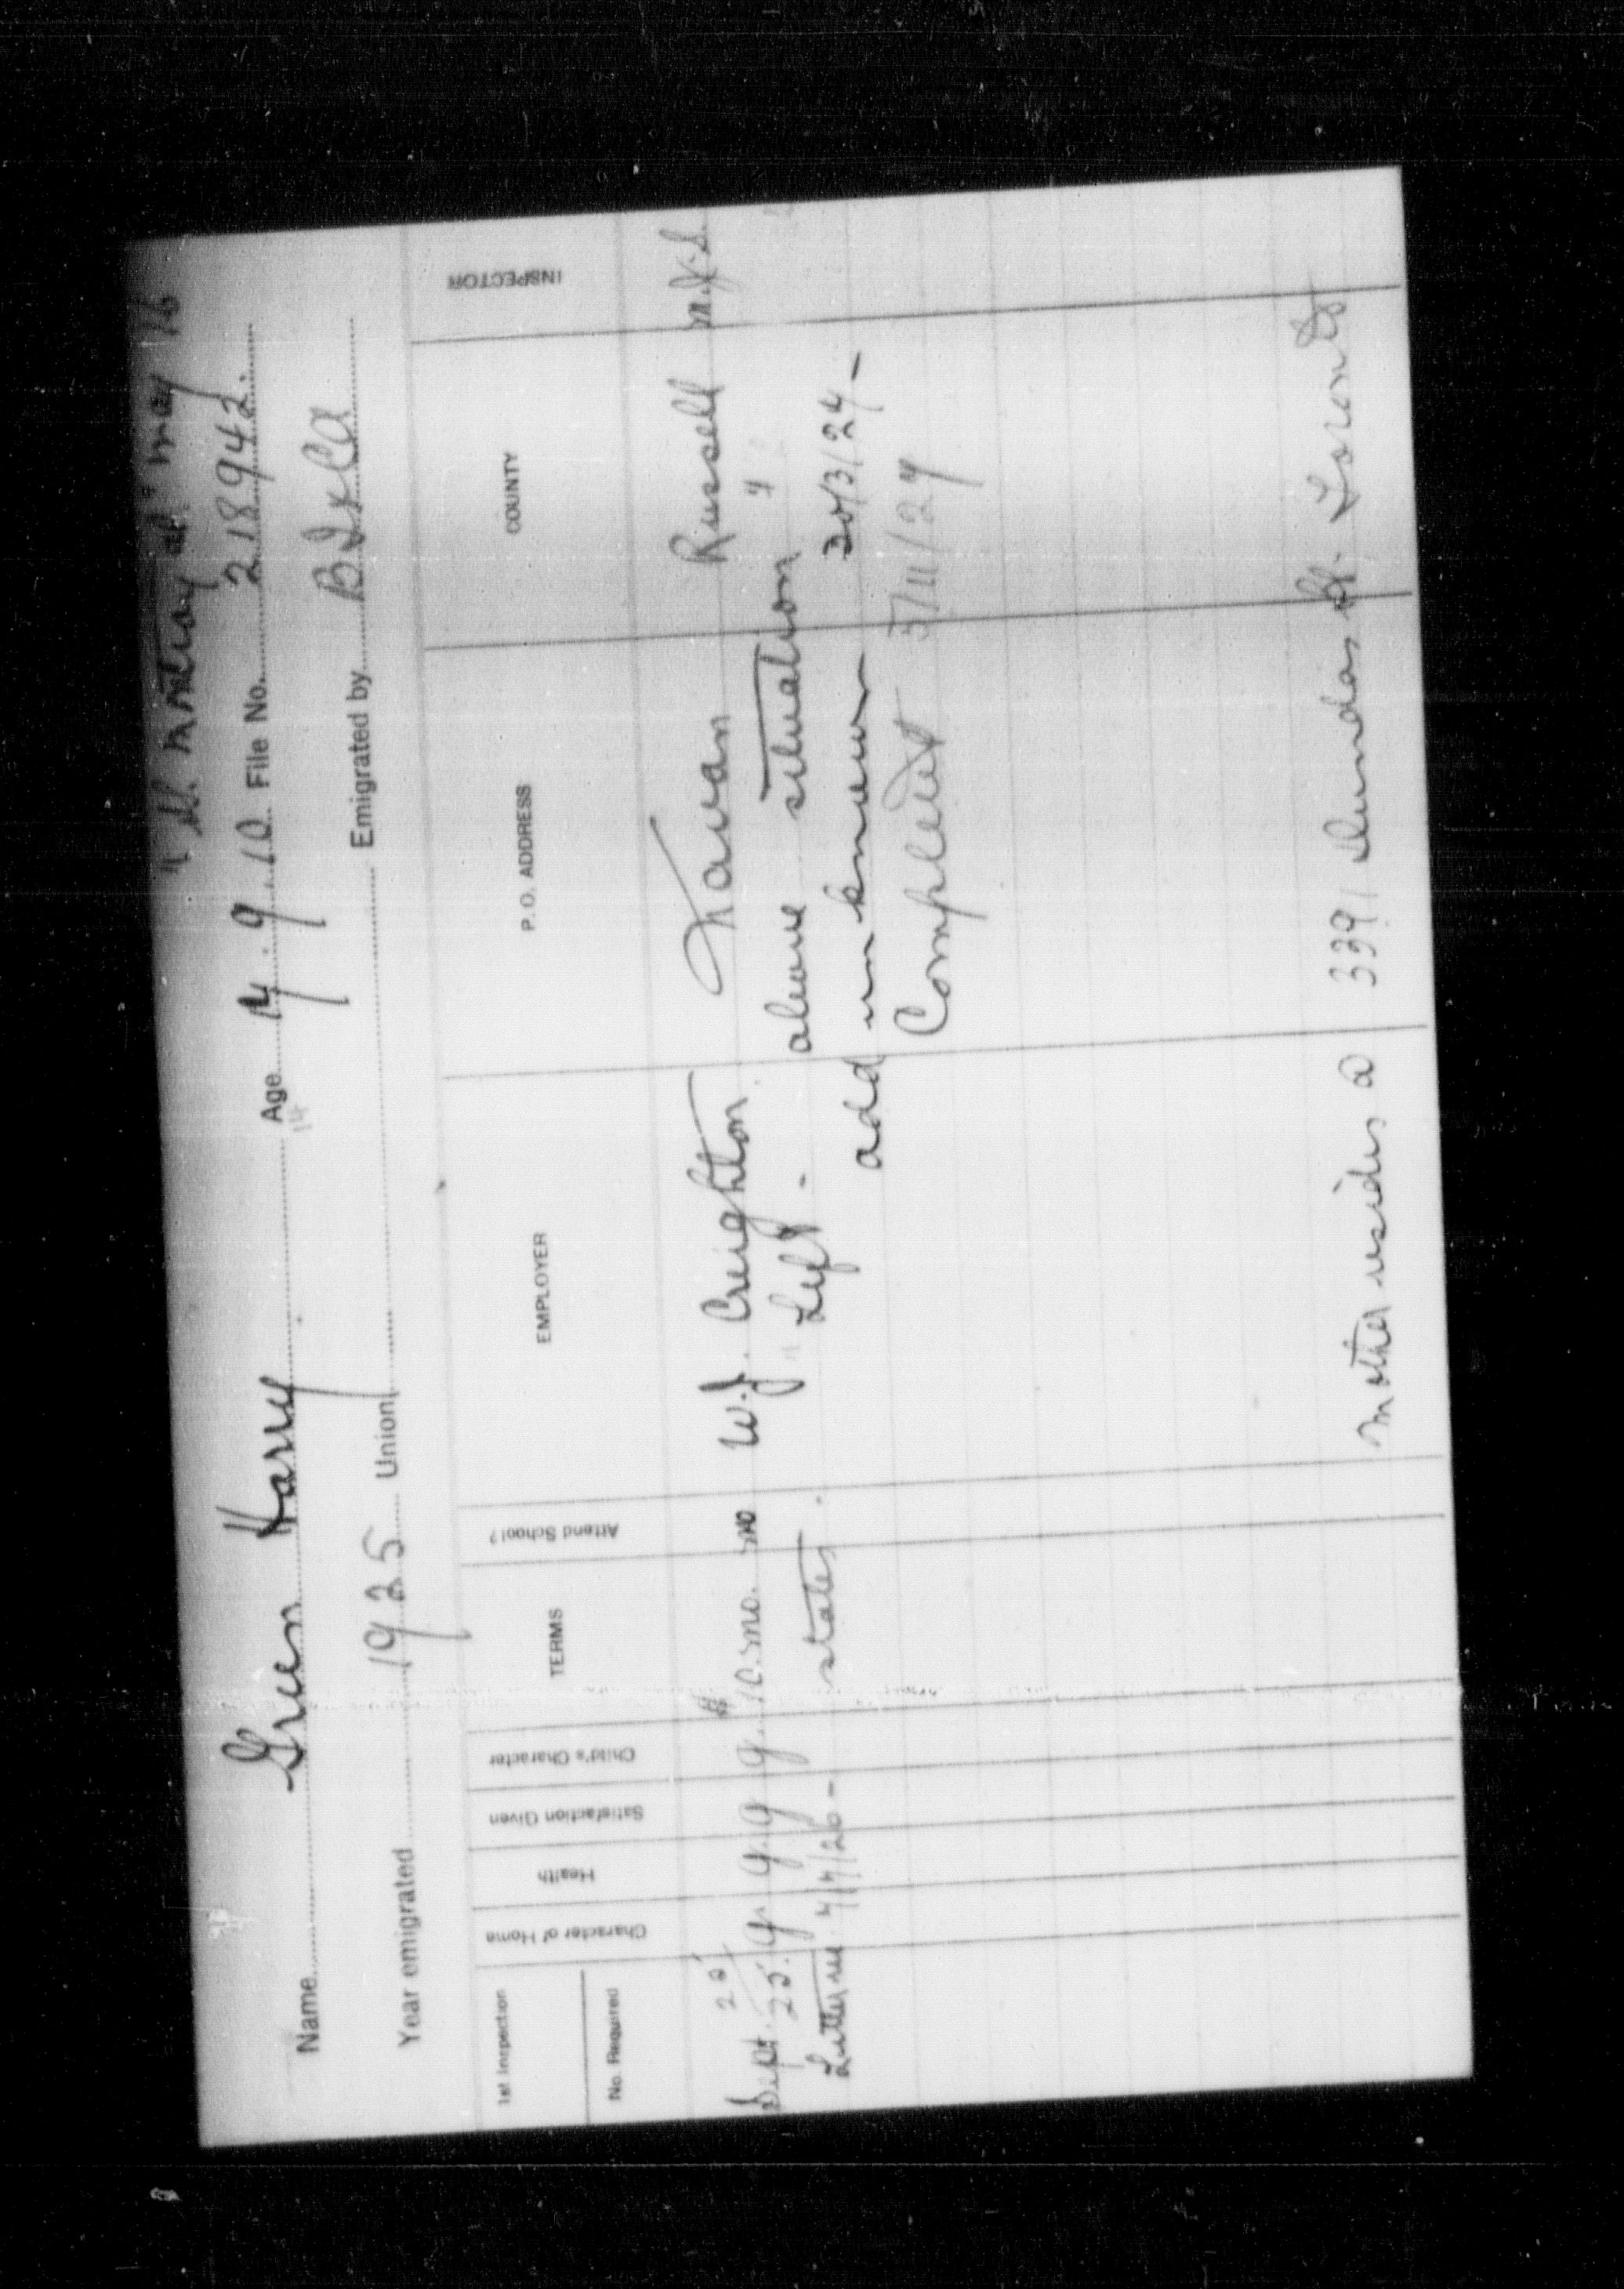 May 16
Name Green Harry Age 14.9.10 File No. 218942.
14
Year emigrated 1925 Union Emigrated by B.I. & Co
1st Inspection
No. Required
Character of Home
Health
Satisfaction Given
Child's Character
TERMS
Attend School?
EMPLOYER
P. O. ADDRESS
COUNTY
INSPECTOR
Sept. 25. g g. g g. $10. mo. no W.J. Creighton Navan Russell M.J.S.
25
Letter rec. 4/4/26 - states. " Left - above situation "
add unknown 20/3/27 -
Completed 5/11/27
Mother resides a 3391 Dundas St. Toronto